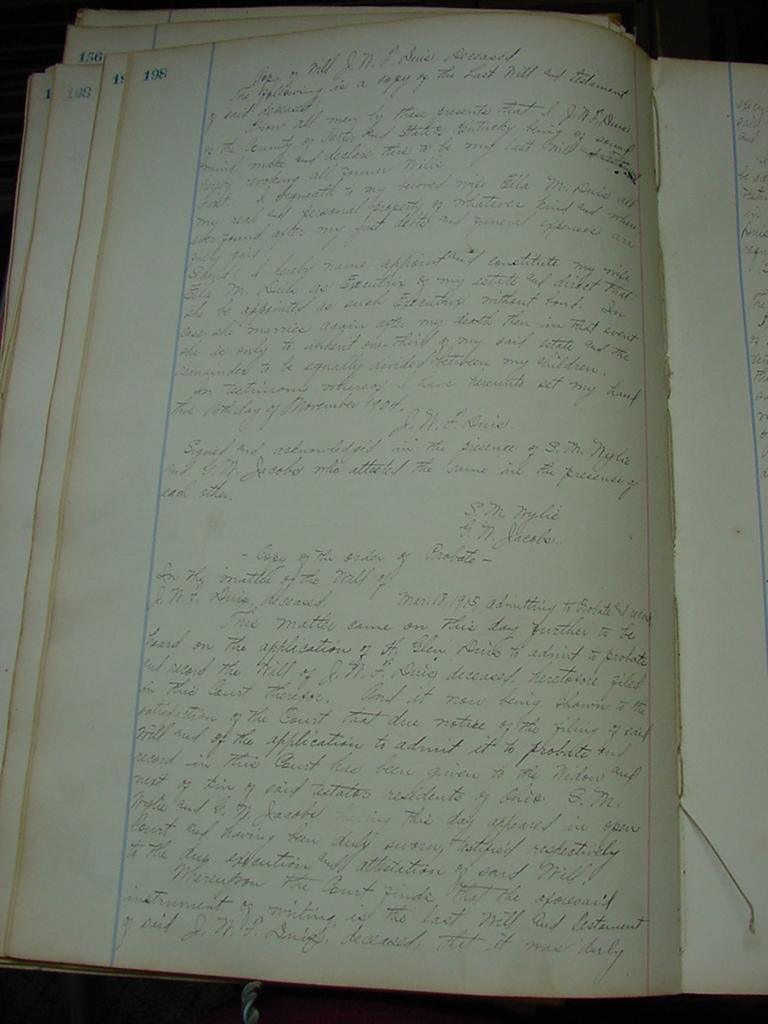 156
198
168
Copy of Will J. W. F. Duis Deceased
The following is a copy of the Last Will and Testament
of said deceased.
Know all men by these presents that I, J. W. F. Duis
of the County of Carter and State of Kentucky, being of sound
mind make and declare this to be my last Will
revoking all former Wills.
First. I bequeath to my beloved wife Ella M. Duis all
my real and personal property of whatever kind and where
ever found after my just debts and funeral expenses are
fully paid.
Second: I hereby name appoint and constitute my wife
Ella M. Duis as Executrix of my estate and direct that
she be appointed as such Executrix without bond. In
case she marries again after my death then in that event
she is only to inherit one-third of my said estate and the
remainder to be equally divided between my children.
In testimony whereof I have hereunto set my hand
this 16th day of November 1904.
J. W. F. Duis.
Signed and acknowledged in the presence of S. M. Wylie
and G. W. Jacobs who attested the same in the presence of
each other.
S. M. Wylie
G. W. Jacobs.
- Copy of the order of Probate -
In the matter of the Will of
J. W. F. Duis, deceased. Mar. 18, 1915, admitting to Probate and record
This matter came on this day further to be
heard on the application of H. Glen Duis to admit to probate
and record the Will of J. W. F. Duis deceased, heretofore filed
in this Court therefor. And it now being shown to the
satisfaction of the Court that due notice of the filing of said
Will and of the application to admit it to probate and
record in this Court has been given to the Widow and
next of kin of said testator residents of Ohio. S. M.
Wylie and G. W. Jacobs having this day appeared in open
Court and having been duly sworn, testified respectively
to the due execution and attestation of said Will.
Whereupon the Court finds that the aforesaid
instrument of writing is the last Will and Testament
of said J. W. F. Duis, deceased, that it was duly